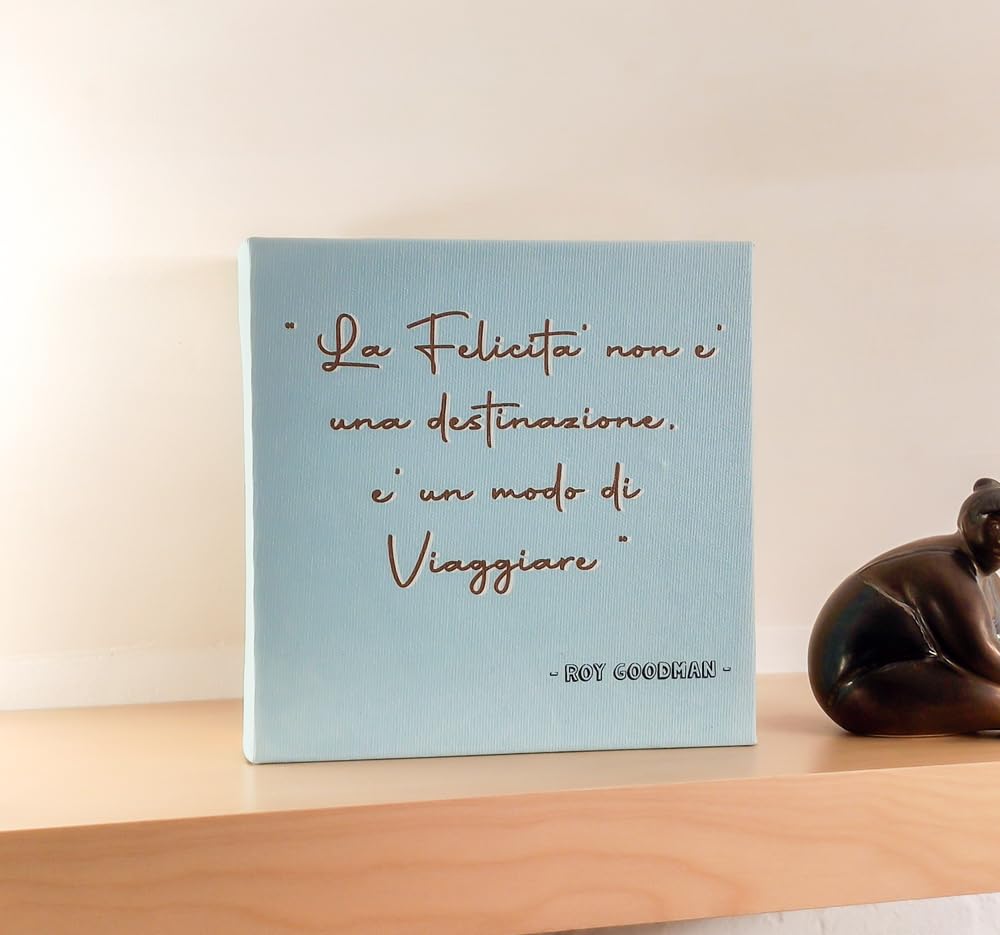 " La Felicita' non e'
una destinazione.
e' un modo di
Viaggiare "
- ROY GOODMAN -